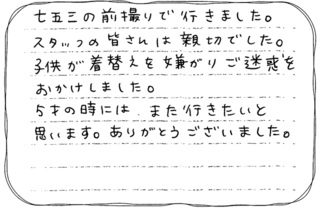 七五三の前撮りで行きました。
スタッフの皆さんは親切でした。
子供が着替えを嫌がりご迷惑を
おかけしました。
5才の時には、また行きたいと
思います。ありがとうございました。